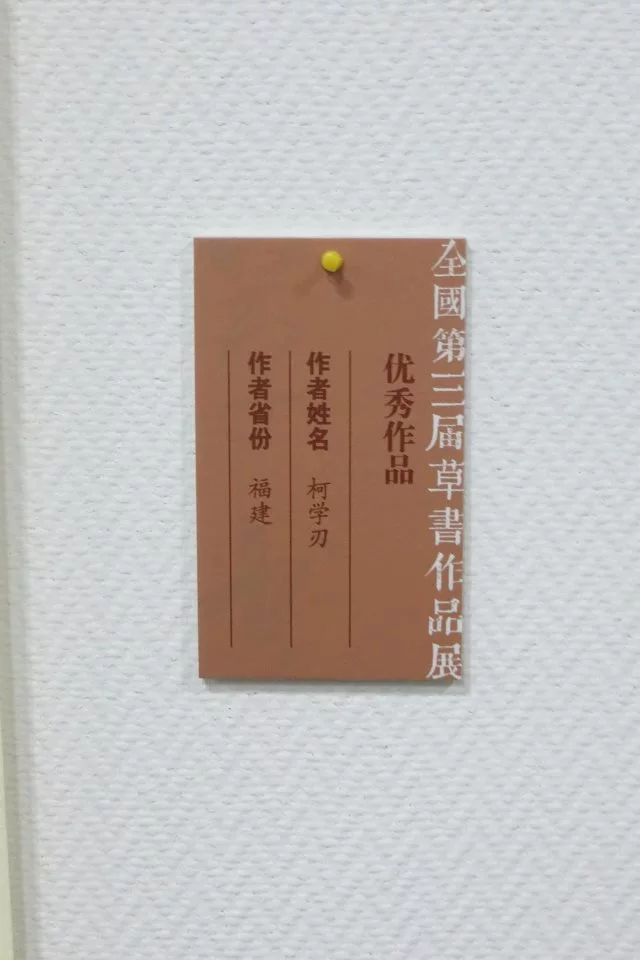 全國第三届草書作品展
优秀作品
作者姓名 柯学刃
作者省份 福建